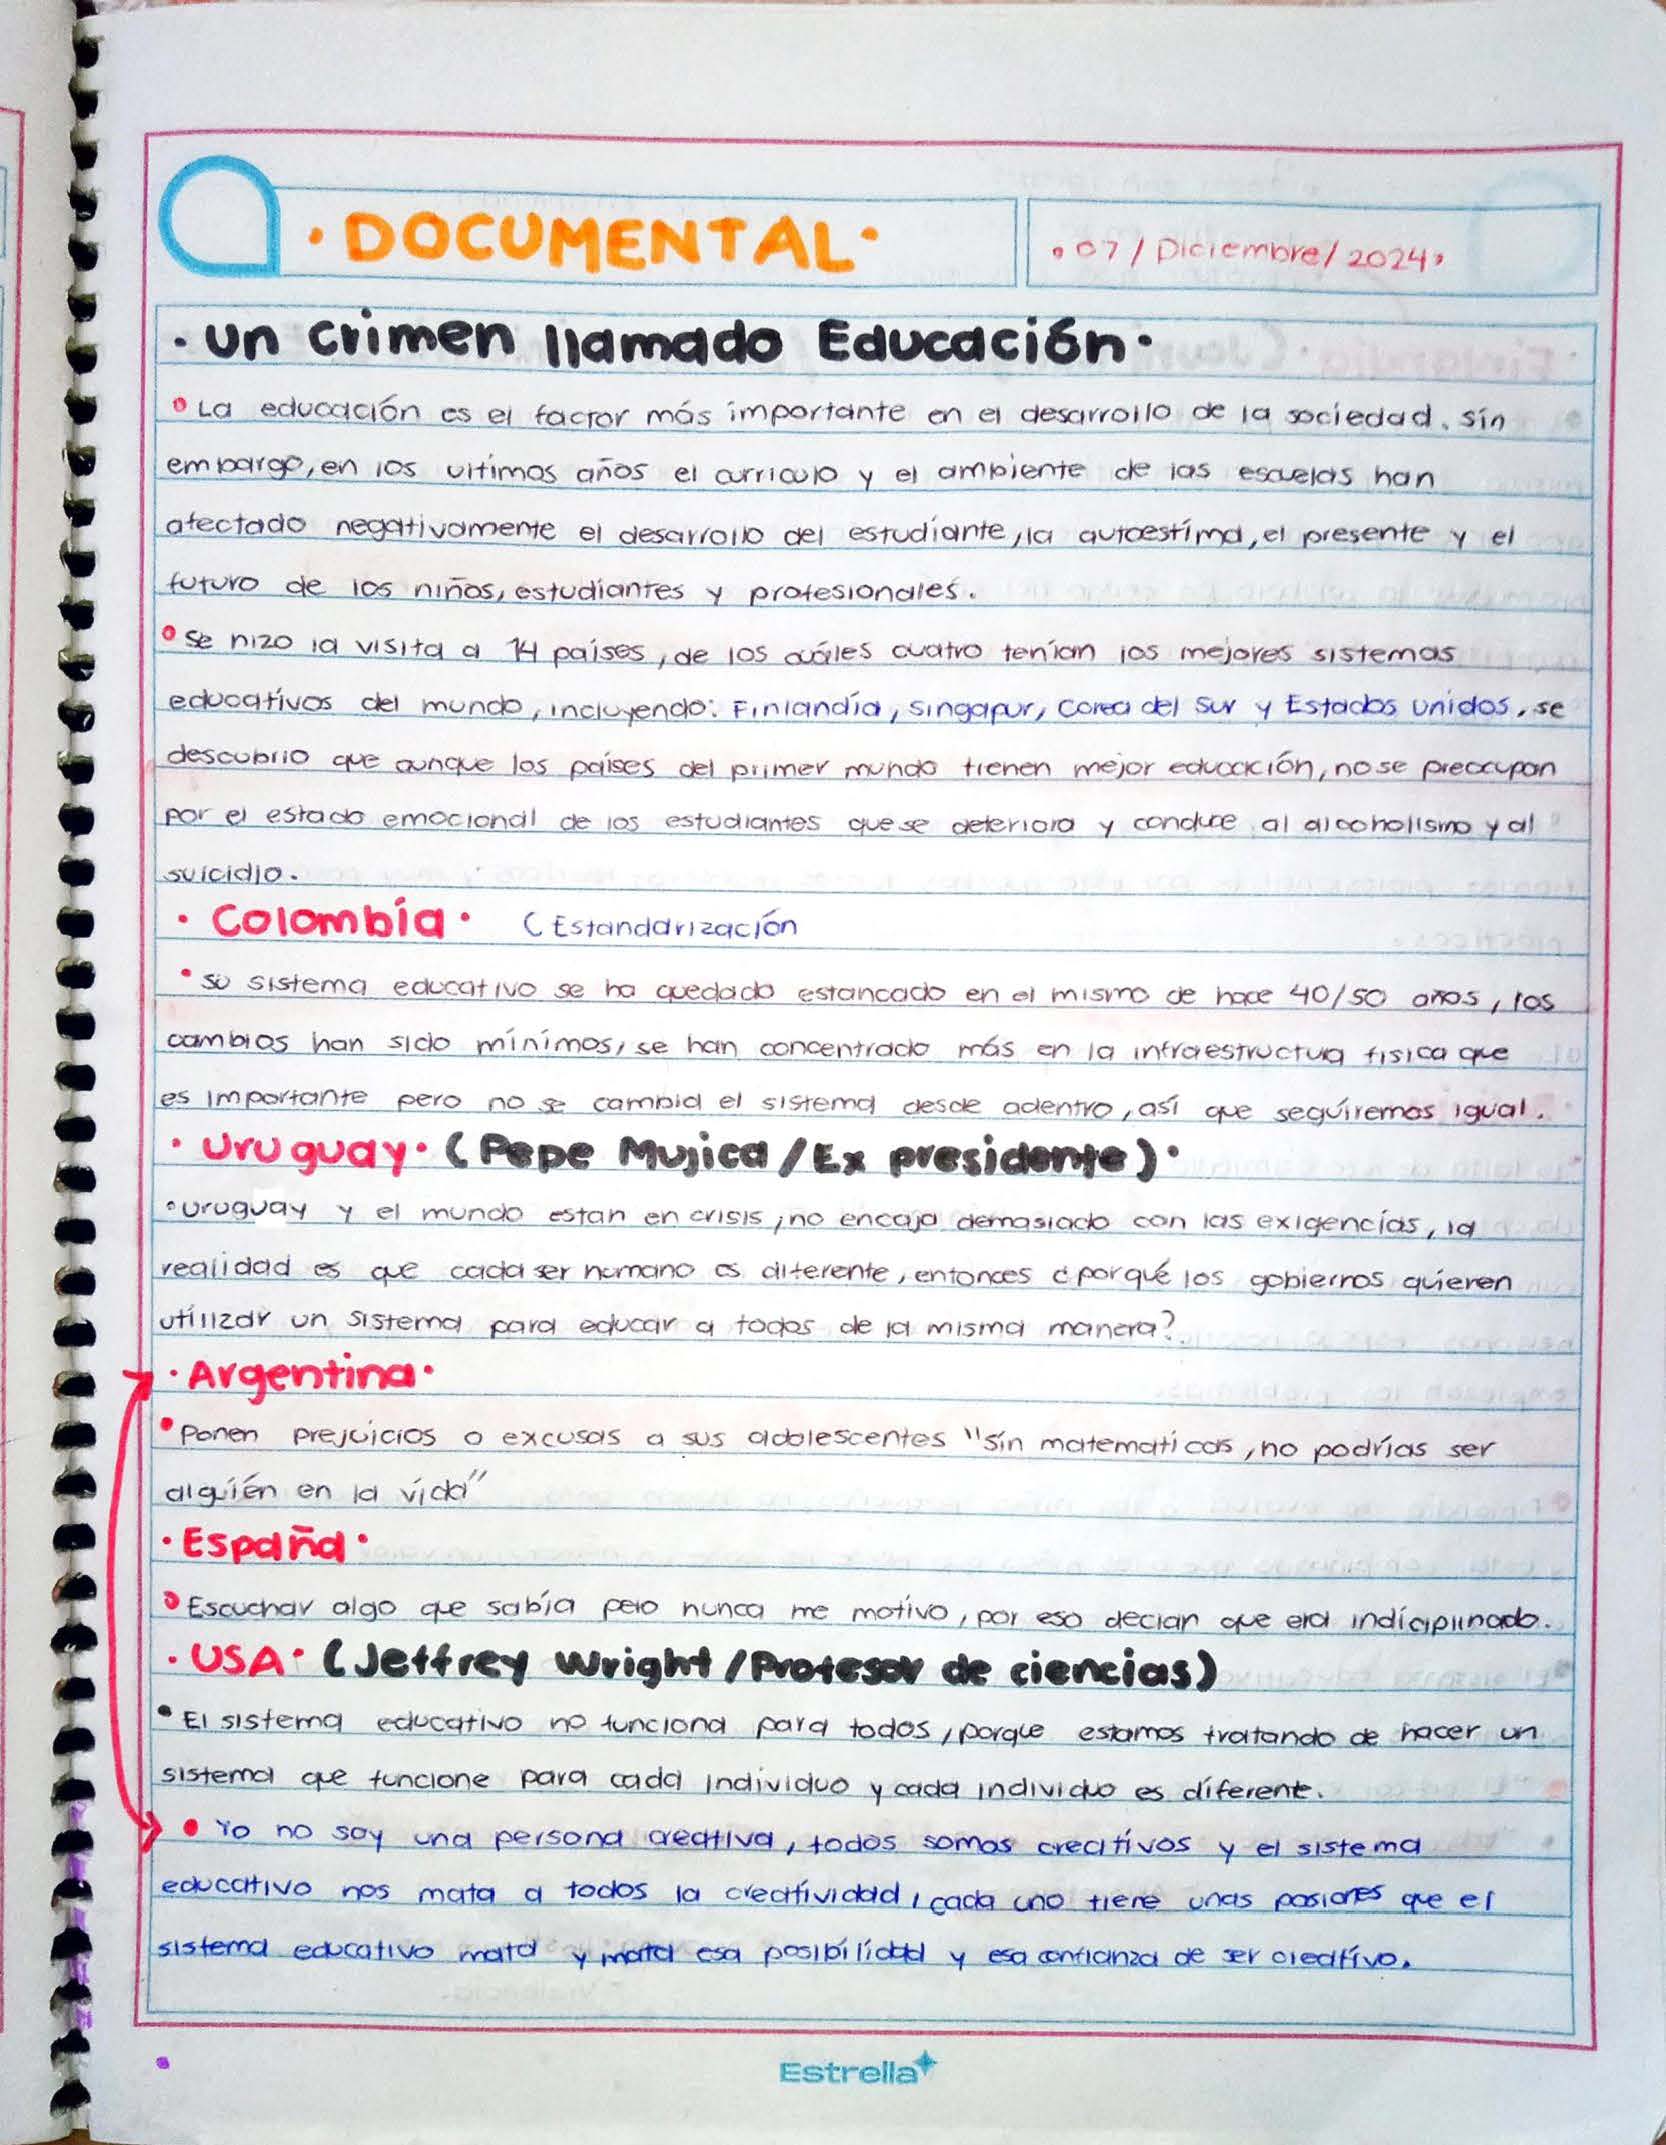 · DOCUMENTAL ·
• 07 / Diciembre / 2024 •
· un crimen llamado Educación ·
• La educación es el factor más importante en el desarrollo de la sociedad. Sin
embargo, en los ultimos años el curriculo y el ambiente de las escuelas han
afectado negativamente el desarrollo del estudiante, la autoestima, el presente y el
futuro de los niños, estudiantes y profesionales.
• Se hizo la visita a 14 países, de los cuáles cuatro tenían los mejores sistemas
educativos del mundo, incluyendo: Finlandia, Singapur, Corea del Sur y Estados Unidos, se
descubrio que aunque los países del primer mundo tienen mejor educación, no se preocupan
por el estado emocional de los estudiantes que se deteriora y conduce al alcoholismo y al
suicidio.
· Colombia · ( Estandarización
• Su sistema educativo se ha quedado estancado en el mismo de hace 40/50 años, los
cambios han sido mínimos, se han concentrado más en la infraestructura fisica que
es importante pero no se cambia el sistema desde adentro, así que seguiremos igual.
· Uruguay · ( Pepe Mujica / Ex presidente ) ·
• Uruguay y el mundo estan en crisis, no encaja demasiado con las exigencias, la
realidad es que cada ser humano es diferente, entonces ¿por qué los gobiernos quieren
utilizar un sistema para educar a todos de la misma manera?
· Argentina ·
• Ponen prejuicios o excusas a sus adolescentes "sin matematicas, no podrías ser
alguién en la vida"
· España ·
• Escuchar algo que sabía pero nunca me motivo, por eso decian que era indiciplinado.
· USA · (Jeffrey Wright / Profesor de ciencias)
• El sistema educativo no funciona para todos, porque estamos tratando de hacer un
sistema que funcione para cada individuo y cada individuo es diferente.
• Yo no soy una persona creativa, todos somos creativos y el sistema
educativo nos mata a todos la creatividad, cada uno tiene unas pasiones que el
sistema educativo mata y mata esa posibilidad y esa confianza de ser creativo.
Estrella